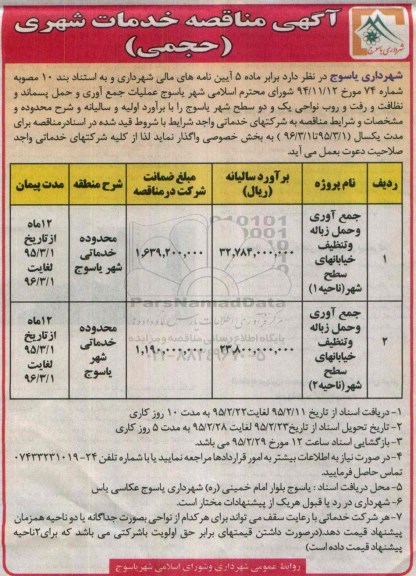 آگهی مناقصه خدمات شهری
(حجمی)
شهرداری یاسوج
شهرداری یاسوج در نظر دارد برابر ماده ۵ آیین نامه های مالی شهرداری و به استناد بند ۱۰ مصوبه
شماره ۷۴ مورخ ۹۴/۱۱/۱۲ شورای محترم اسلامی شهر یاسوج عملیات جمع آوری و حمل پسماند و
نظافت و رفت و روب نواحی یک و دو سطح شهر یاسوج را با برآورد اولیه و سالیانه و شرح محدوده و
مشخصات و شرایط مناقصه به شرکتهای خدماتی واجد شرایط با قیود قید شده در اسنادرمناقصه برای
مدت یکسال (۹۵/۳/۱تا ۹۶/۳/۱) به بخش خصوصی واگذار نماید لذا از کلیه شرکتهای خدماتی واجد
صلاحیت دعوت بعمل می آید.
ردیف نام پروژه برآورد سالیانه (ریال) مبلغ ضمانت شرکت در مناقصه شرح منطقه مدت پیمان
۱ جمع آوری وحمل زباله وتنظیف خیابانهای سطح شهر(ناحیه۱) ۳۲,۷۸۴,۰۰۰,۰۰۰ ۱,۶۳۹,۲۰۰,۰۰۰ محدوده خدماتی شهر یاسوج ۱۲ماه ازتاریخ ۹۵/۳/۱ لغایت ۹۶/۳/۱
۲ جمع آوری وحمل زباله وتنظیف خیابانهای سطح شهر(ناحیه۲) ۲۳,۸۰۰,۰۰۰,۰۰۰ ۱,۱۹۰,۰۰۰,۰۰۰ محدوده خدماتی شهر یاسوج ۱۲ماه ازتاریخ ۹۵/۳/۱ لغایت ۹۶/۳/۱
ParsNamadData
۱- دریافت اسناد از تاریخ ۹۵/۲/۱۱ لغایت۹۵/۲/۲۲ به مدت ۱۰ روز کاری
۲- تاریخ تحویل اسناد از تاریخ۹۵/۲/۲۳ لغایت ۹۵/۲/۲۸ به مدت ۵ روز کاری
۳- بازگشایی اسناد ساعت ۱۲ مورخ ۹۵/۲/۲۹ می باشد.
۴-در صورت نیاز به اطلاعات بیشتر به امور قراردادها مراجعه نمایید یا با شماره تلفن ۲۴-۰۷۴۳۳۲۳۱۰۱۹
تماس حاصل فرمایید.
۵- محل دریافت اسناد : یاسوج بلوار امام خمینی (ره) شهرداری یاسوج عکاسی یاس
۶- شهرداری در رد یا قبول هریک از پیشنهادات مختار است.
۷- هر شرکت خدماتی با رعایت سقف می تواند برای هرکدام از نواحی بصورت جداگانه یا دو ناحیه همزمان
پیشنهاد قیمت دهد.(درصورت داشتن قیمتهای برابر حق اولویت باشرکتی می باشد که برای۲ناحیه
پیشنهاد قیمت داده است)
روابط عمومی شهرداری وشورای اسلامی شهریاسوج